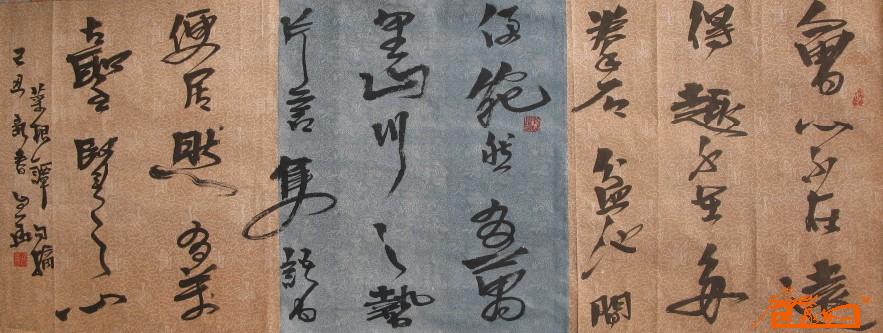 會心不在遠
得趣不在多
拳石盆池間
便宛然有萬
里山川之勢
片言隻語內
便居然有萬
古聖賢之心
菜根譚句摘
己丑